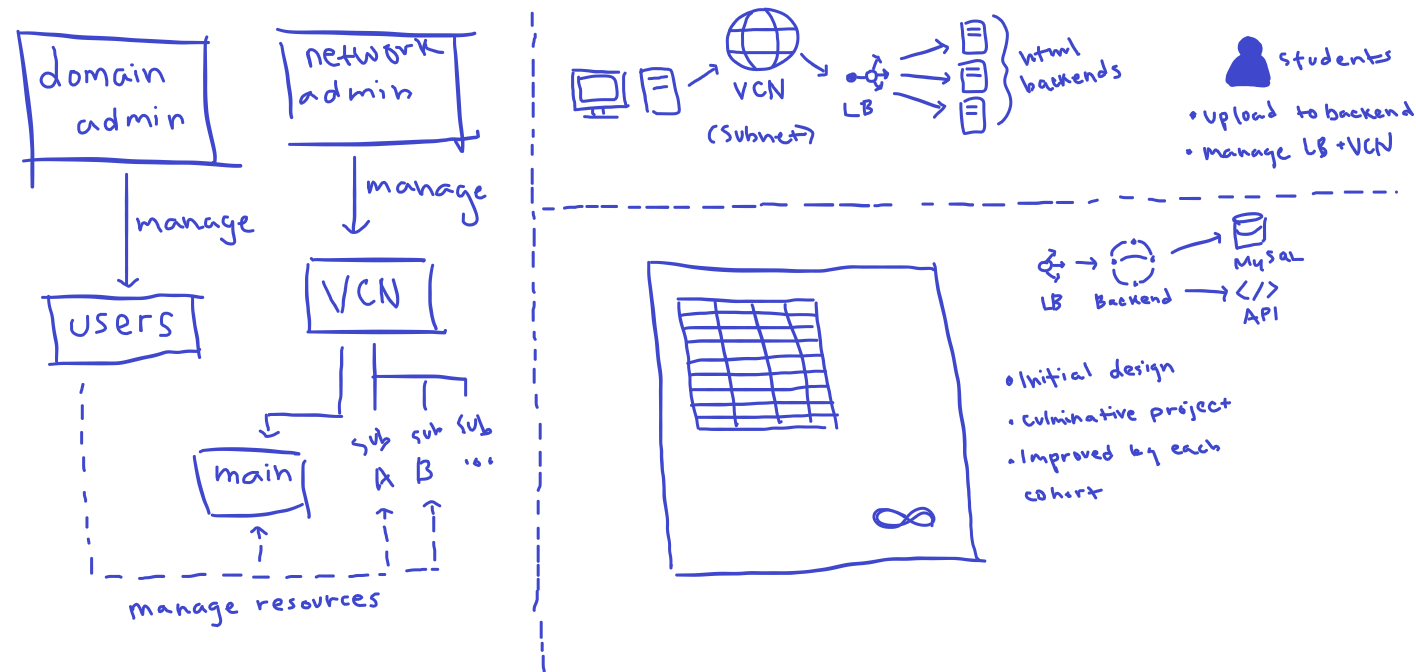 domain
admin
manage
users
network
admin
manage
VCN
main
sub
A
sub
B
sub
...
manage resources
VCN
(Subnet)
LB
html
backends
students
• upload to backend
• manage LB + VCN
LB
Backend
MySQL
</>
API
• Initial design
• culminative project
• Improved by each
cohort